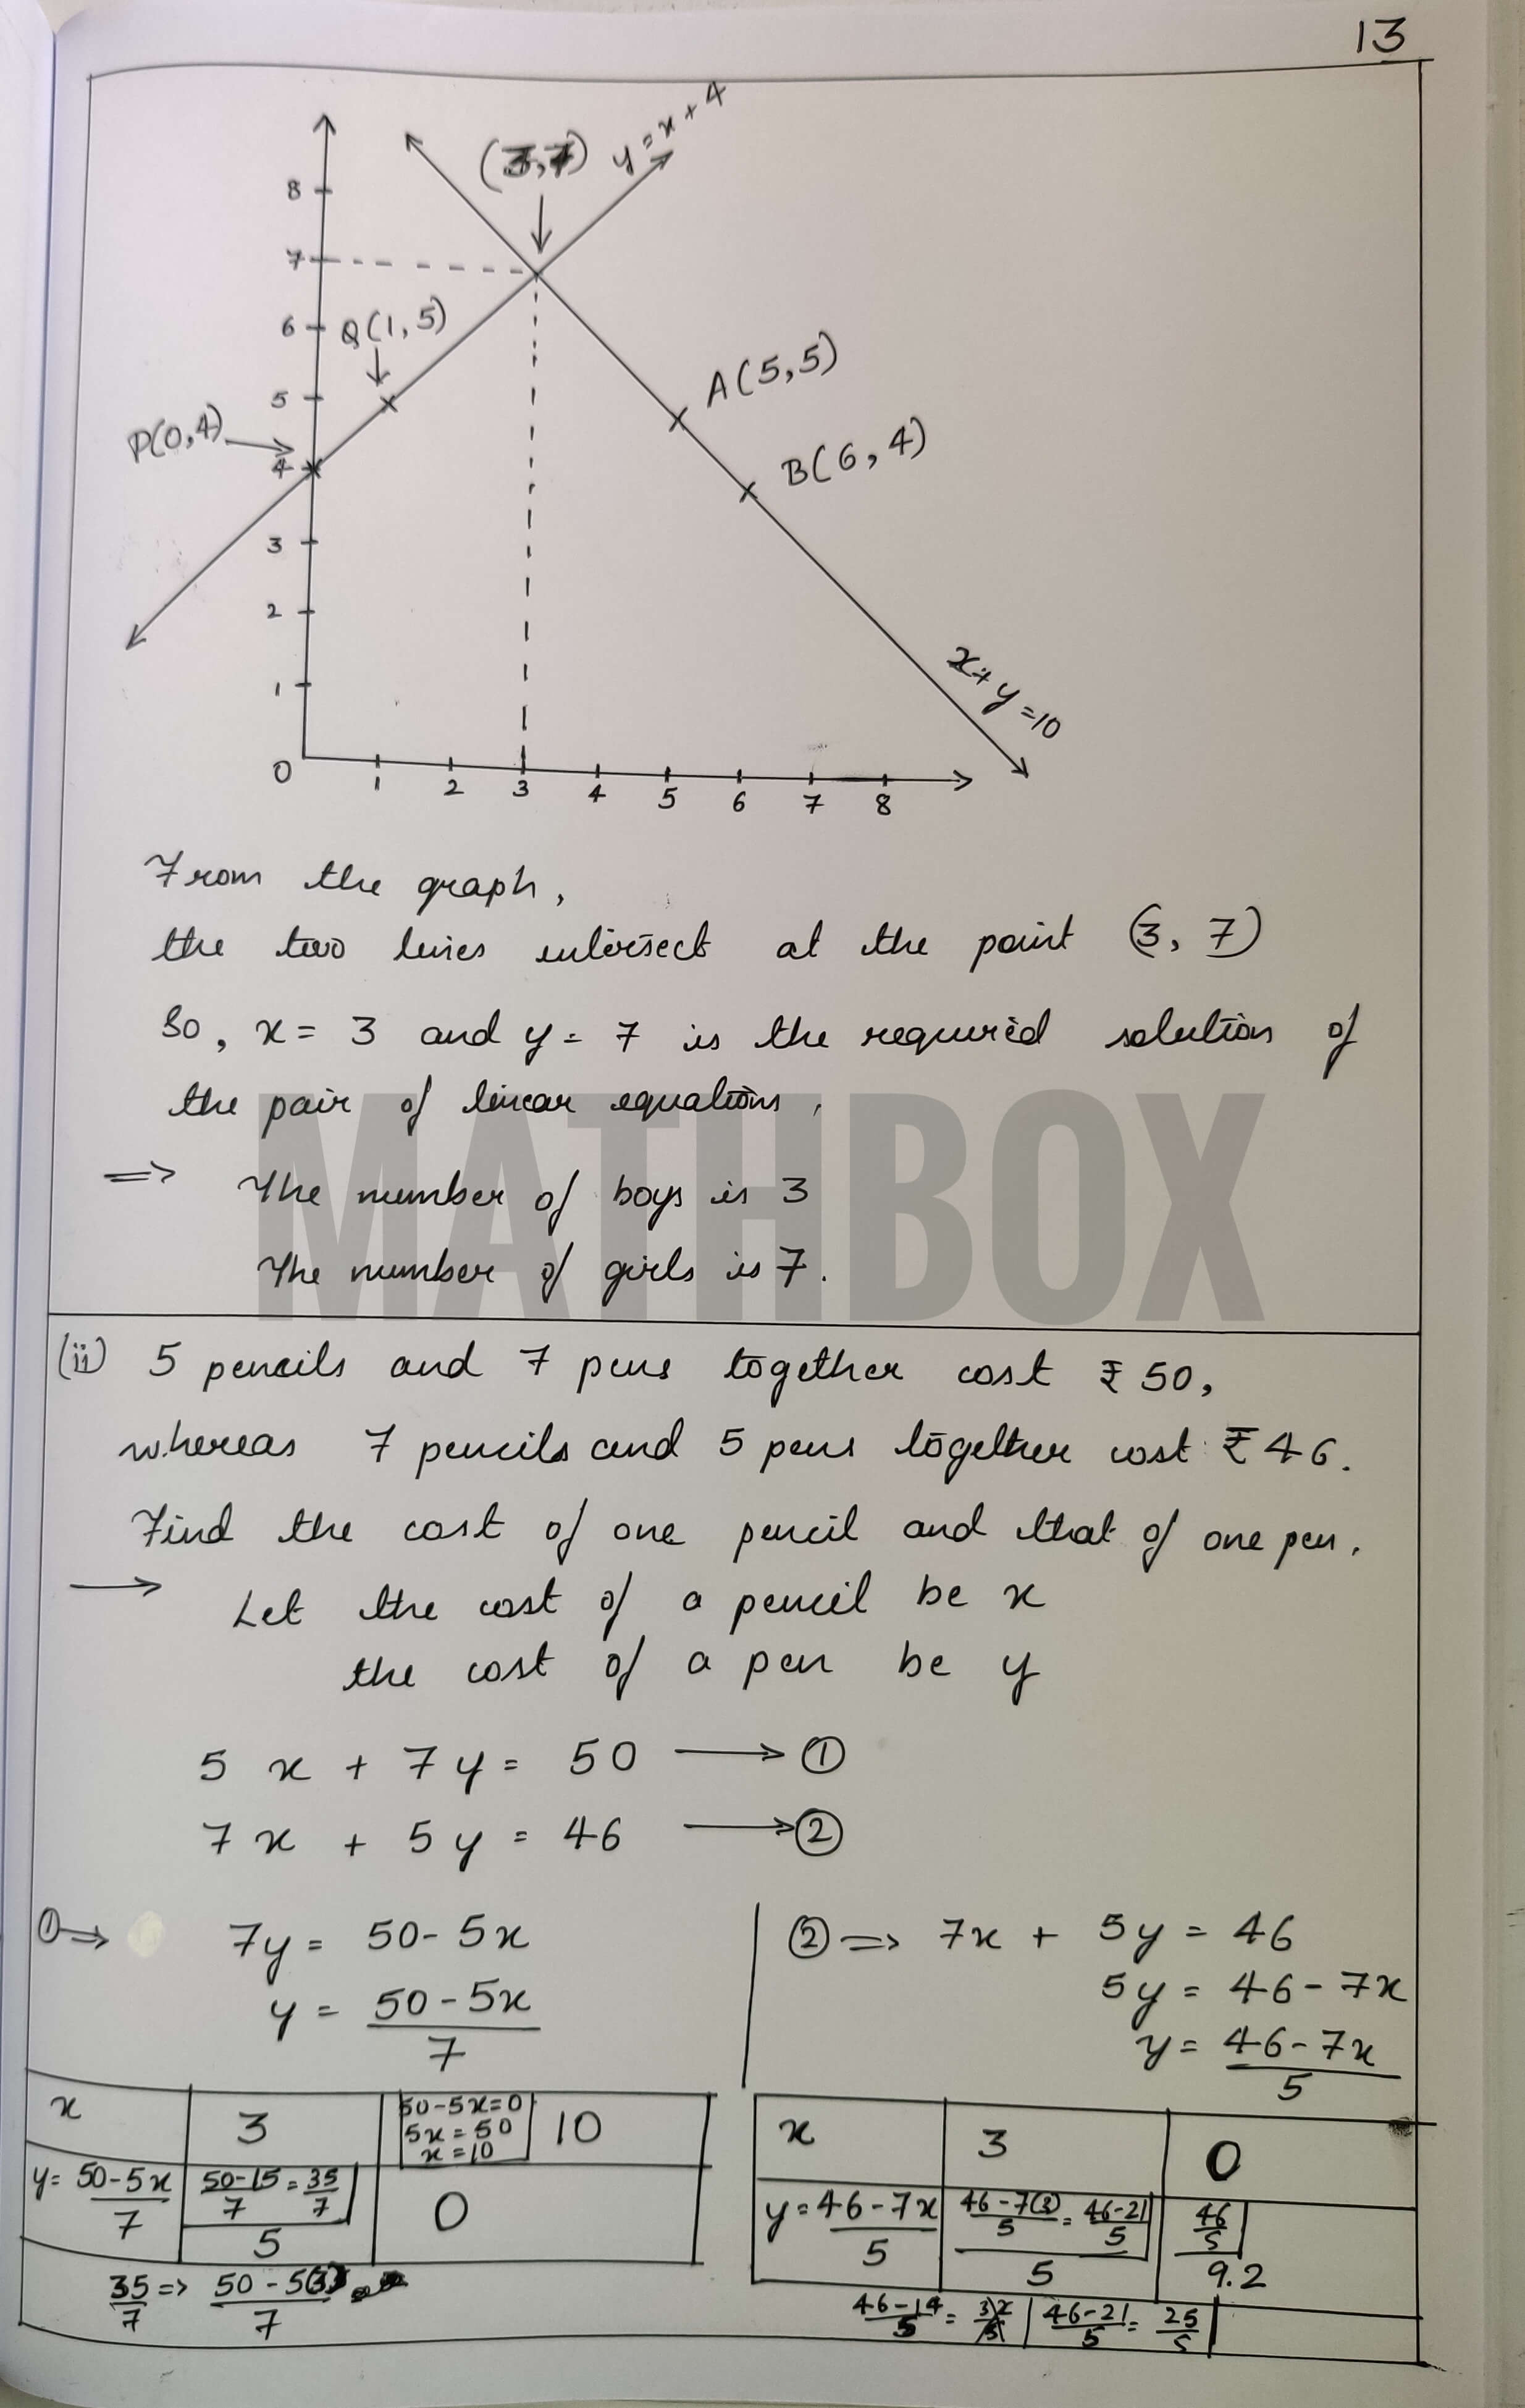 13
y = x + 4
(3,7)
8
7
6
Q(1,5)
5
A(5,5)
P(0,4)
4
B(6,4)
3
2
1
x+y=10
0 1 2 3 4 5 6 7 8
From the graph,
the two lines intersect at the point (3, 7)
So, x = 3 and y = 7 is the required solution of
the pair of linear equations.
⇒ The number of boys is 3
The number of girls is 7.
MATHBOX
(ii) 5 pencils and 7 pens together cost ₹50,
whereas 7 pencils and 5 pens together cost ₹46.
Find the cost of one pencil and that of one pen.
→ Let the cost of a pencil be x
the cost of a pen be y
5x + 7y = 50 → ①
7x + 5y = 46 → ②
①⇒ 7y = 50 - 5x
y = 50 - 5x / 7
②⇒ 7x + 5y = 46
5y = 46 - 7x
y = 46 - 7x / 5
x 3 50-5x=0 10
5x = 50
x = 10
y = 50-5x / 7 50-15 / 7 = 35 / 7 0
5
35 / 7 => 50 - 5(3) / 7
x 3 0
y = 46-7x / 5 46-7(3) / 5 = 46-21 / 5 46 / 5
5 9.2
46-14 / 5 = 32 / 5 46-21 / 5 = 25 / 5